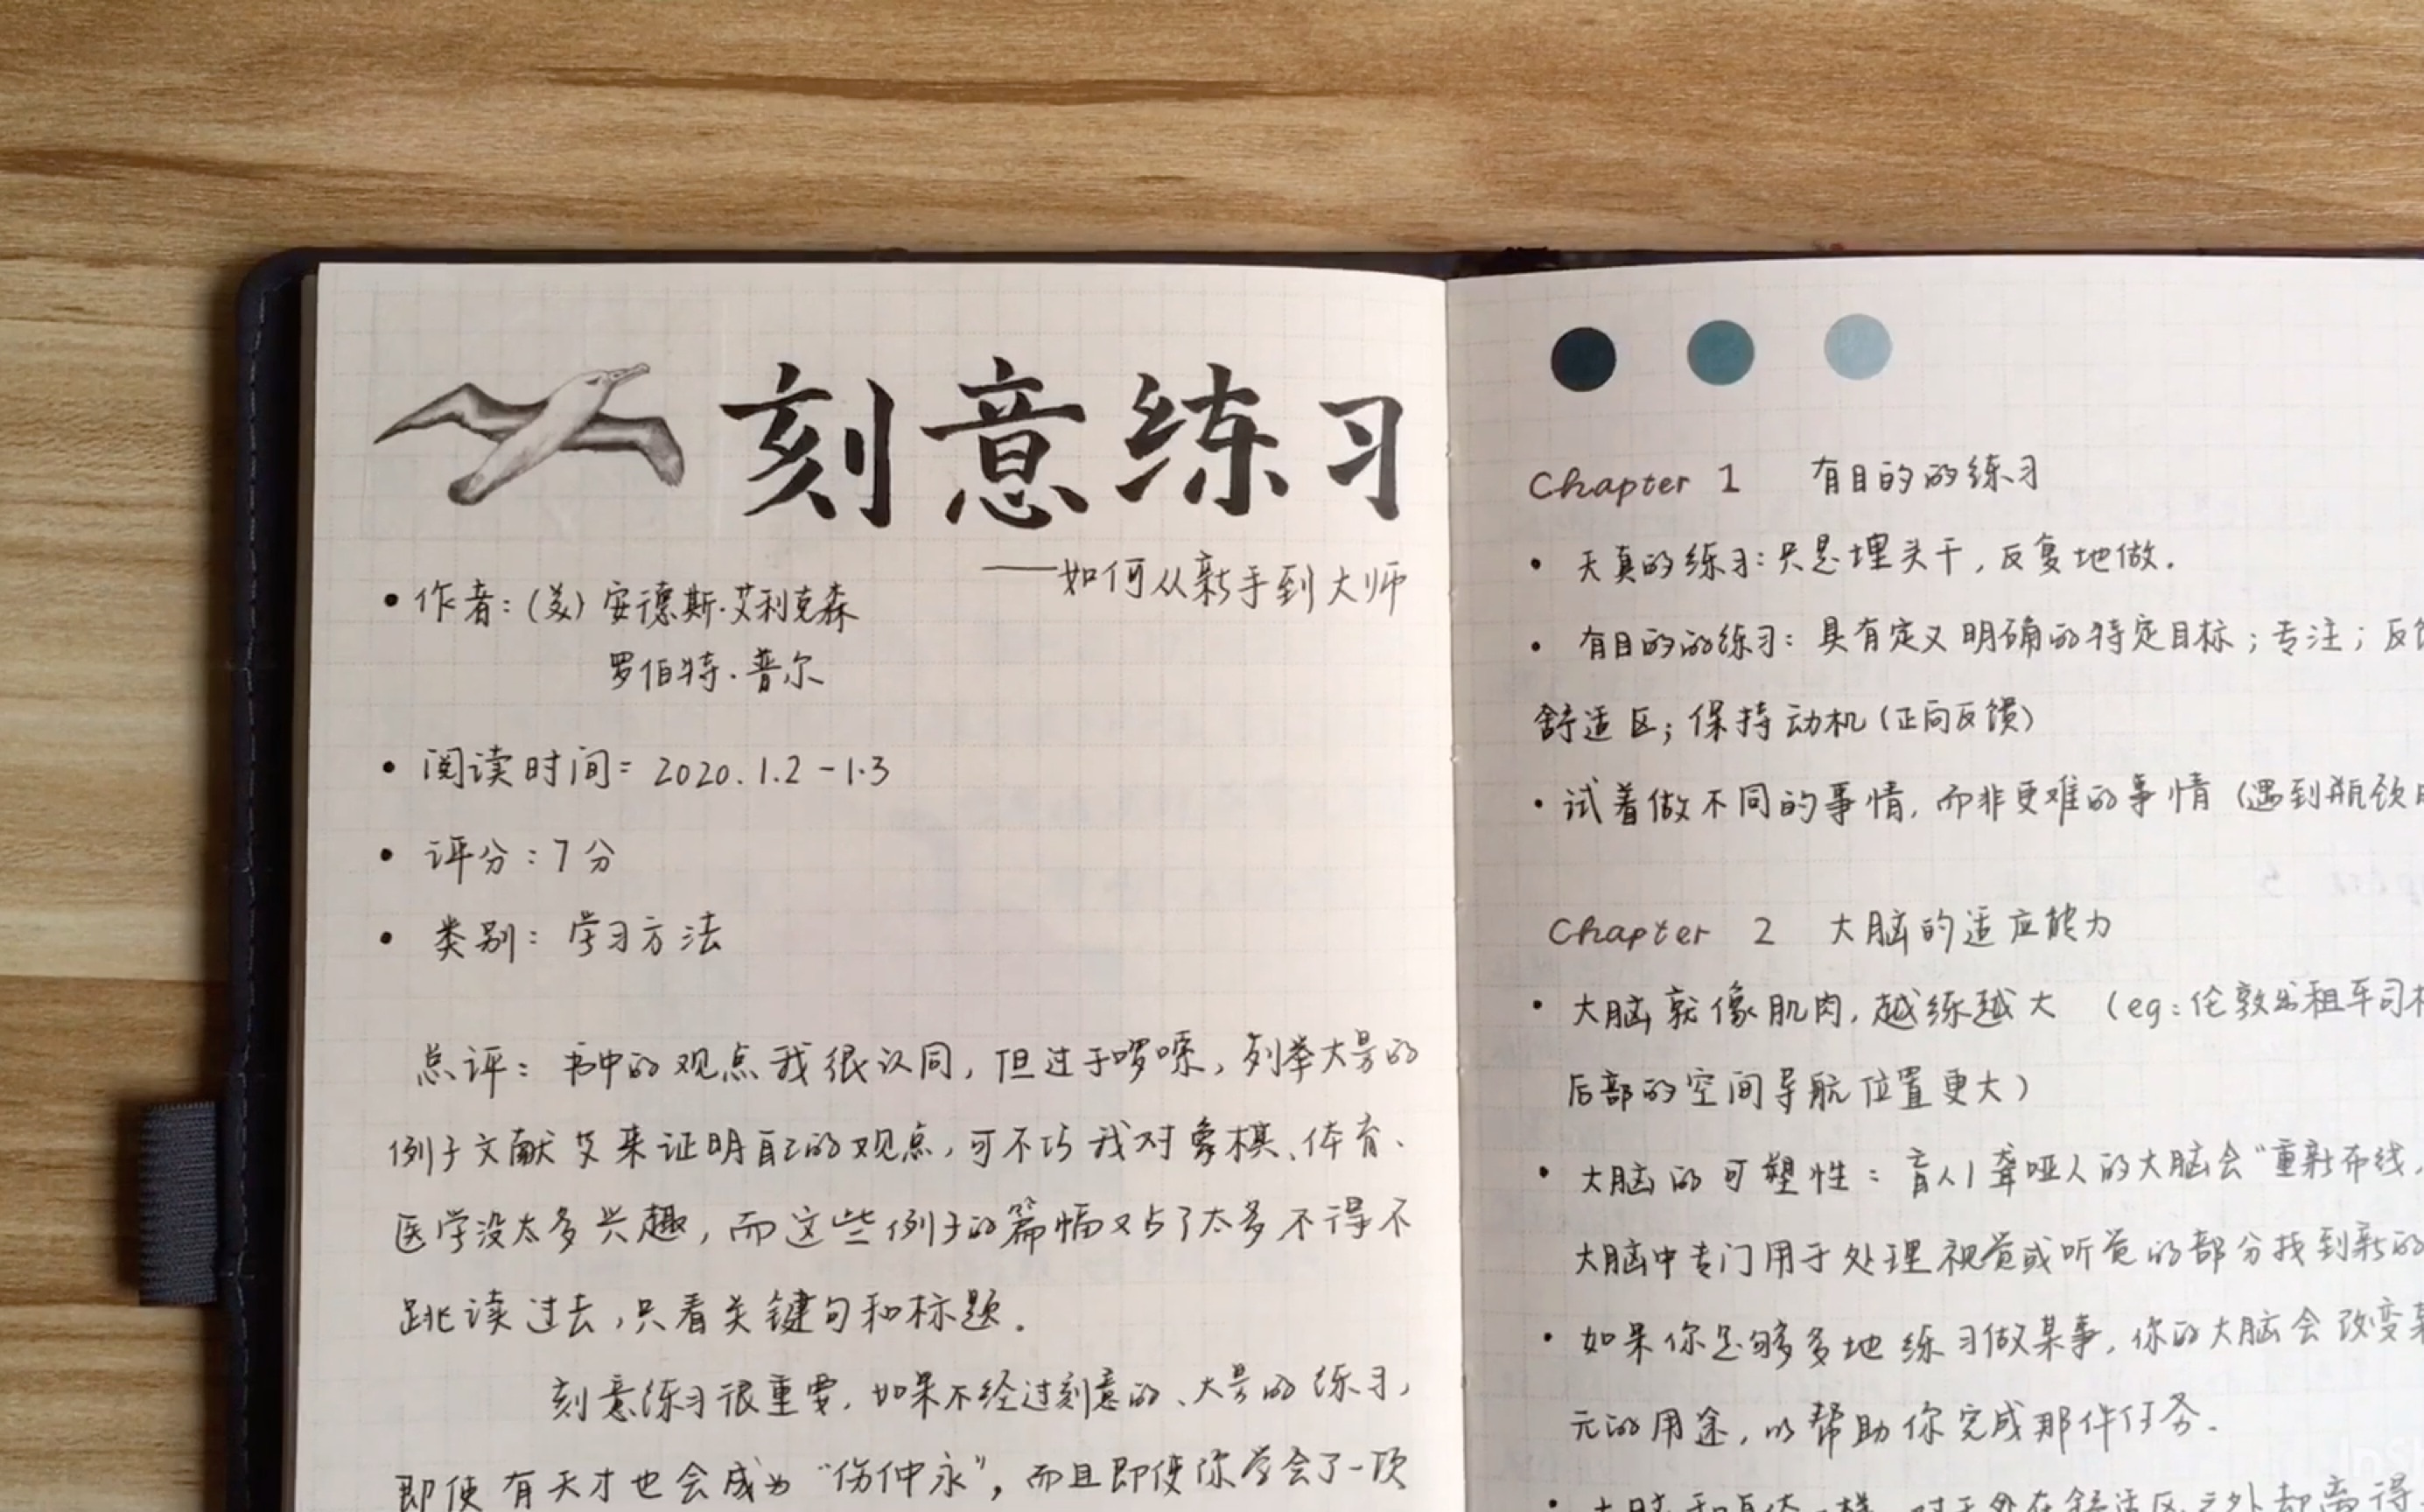 刻意练习
——如何从新手到大师
• 作者:(美) 安德斯·艾利克森
罗伯特·普尔
• 阅读时间: 2020.1.2-1.3
• 评分:7分
• 类别: 学习方法
总评: 书中的观点我很认同,但过于啰嗦,列举大量的
例子文献艾来证明自己的观点,可不巧我对象棋、体育、
医学没太多兴趣,而这些例子的篇幅又占了太多不得不
跳读过去,只看关键句和标题.
刻意练习很重要,如果不经过刻意的、大量的练习,
即使有天才也会成为“伤仲永”,而且即使你学会了一项
Chapter 1 有目的的练习
• 天真的练习:只是埋头干,反复地做.
• 有目的的练习: 具有定义明确的特定目标;专注;反馈
舒适区;保持动机(正向反馈)
• 试着做不同的事情,而非更难的事情(遇到瓶颈
Chapter 2 大脑的适应能力
• 大脑就像肌肉,越练越大 (eg:伦敦出租车司机
后部的空间导航位置更大)
• 大脑的可塑性: 盲人/聋哑人的大脑会“重新布线,
大脑中专门用于处理视觉或听觉的部分找到新的
• 如果你足够多多地练习做某事,你的大脑会改变某
元的用途,以帮助你完成那件任务.